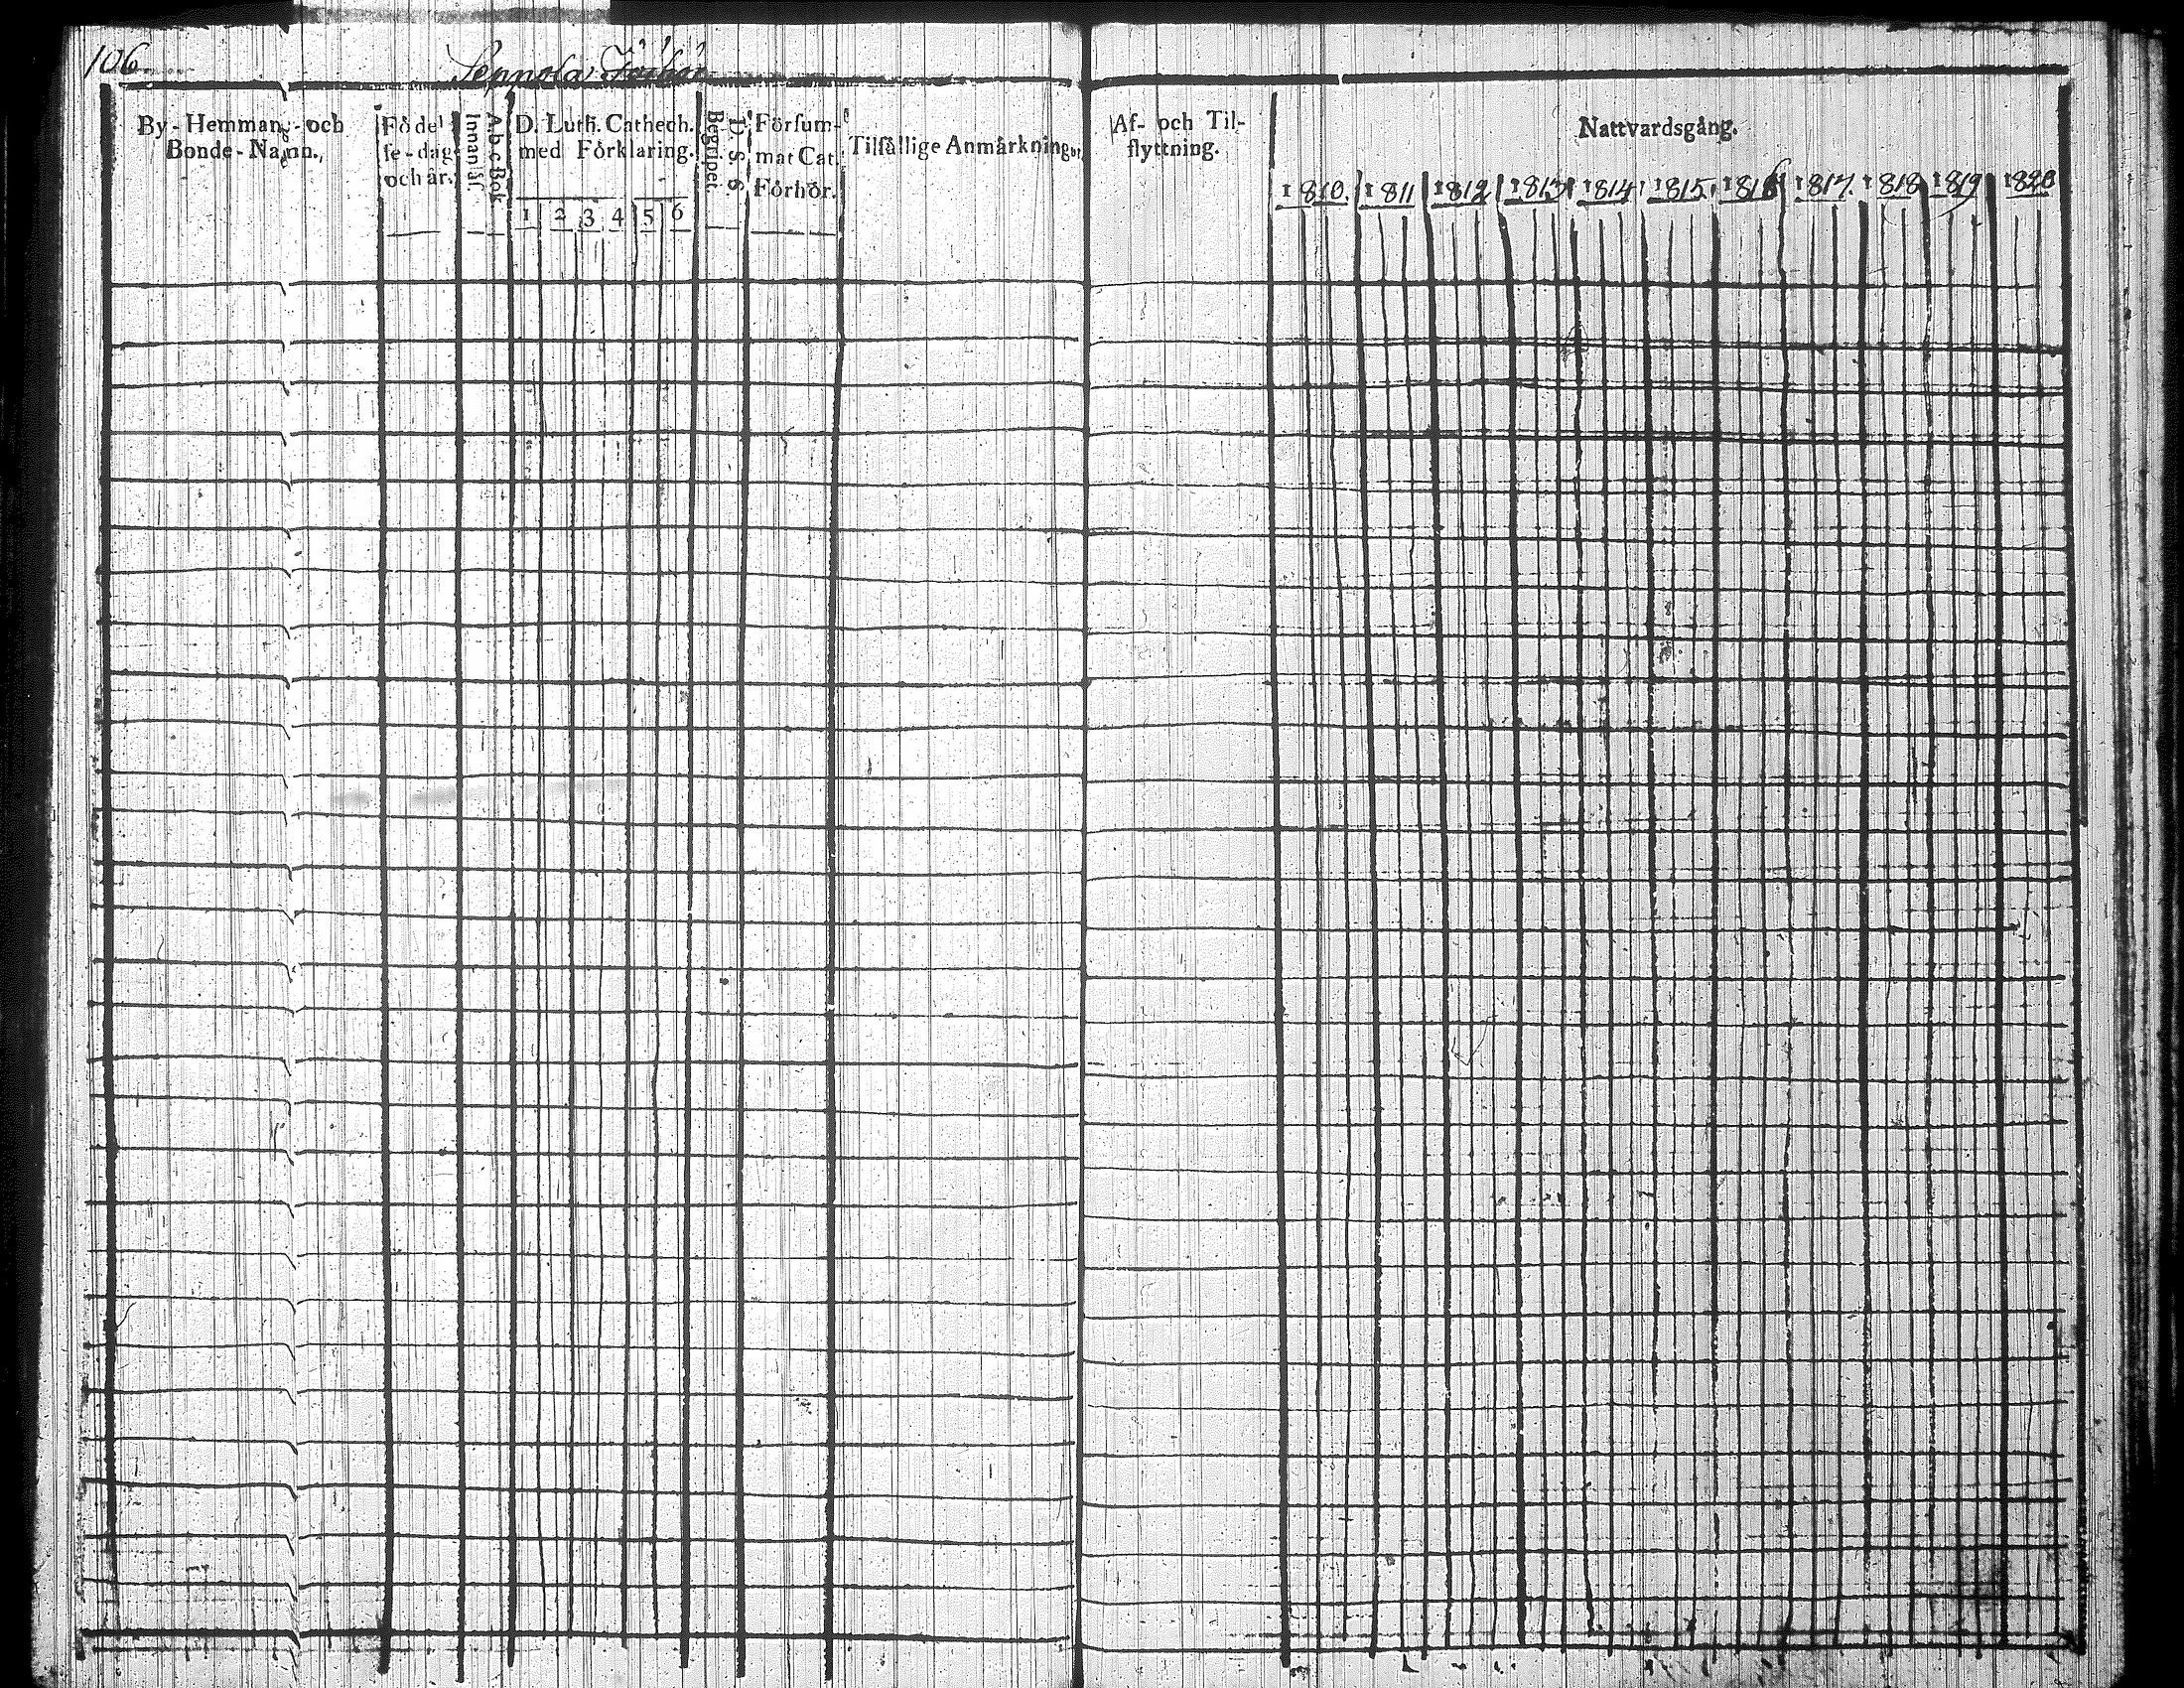 106.
Seppola Förhör
By- Hemmans- och
Bonde-Namn.
Födel-
se-dag
och år.
Innanläs.
A b c Bok
D. Luth. Cathech.
med Förklaring.
1 2 3 4 5 6
Begrepet.
D. S. S.
Försum-
mat Cat.
Förhör.
Tilfällige Anmärkningar
Af- och Til-
flyttning.
Nattvardsgång.
1810. 1811 1812 1813 1814 1815. 1816 1817. 1818 1819 1820